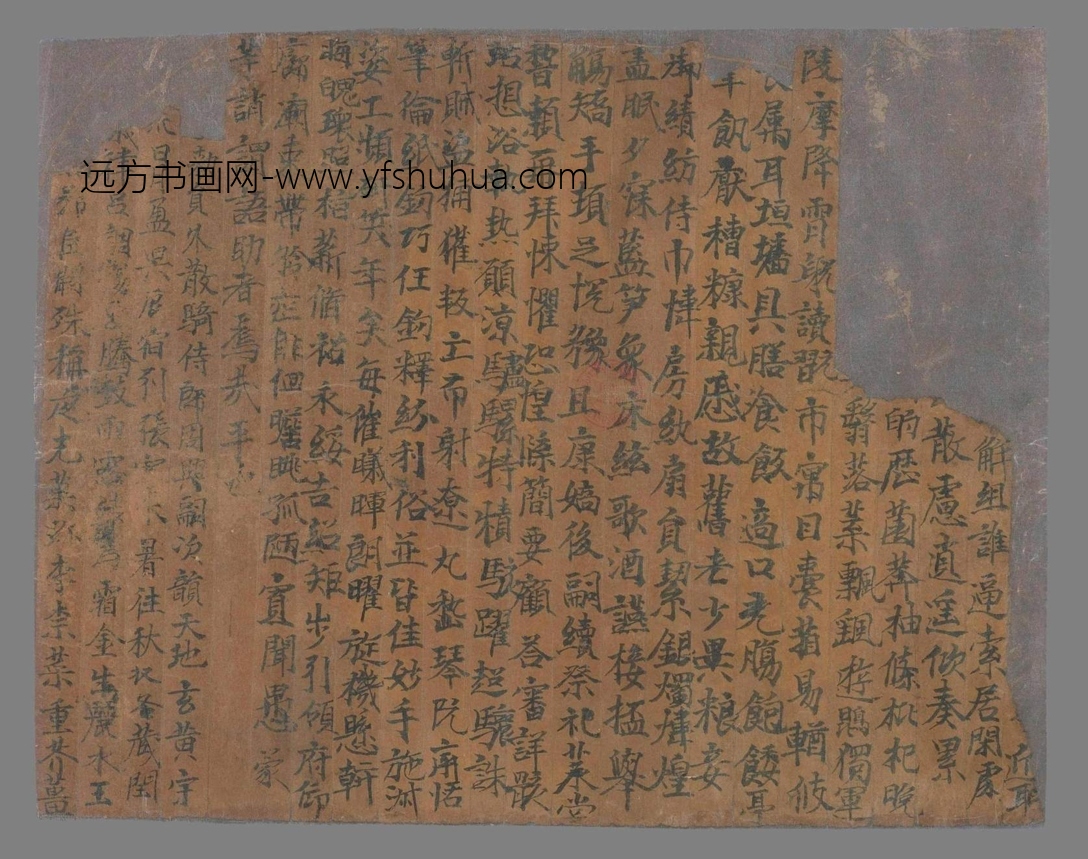 近耻
解组誰逼索居閑處
散慮逍遥
累
的歷園莽抽條枇杷晚
翳落葉飄颻遊鵾獨運
陵摩降霄耽讀翫市寓目囊箱易輶攸
属耳垣墻具膳飡飯適口充腸飽飫烹
宰飢厭糟糠親慼故舊老少異粮妾
御績紡侍巾帷房紈扇員絜銀燭煒煌
晝眠夕寐藍笋象床絃歌酒讌接杯舉
觴矯手頓足悦豫且康嫡後嗣續祭祀蒸嘗
稽顙再拜悚懼恐惶牋簡要顧荅審詳骸
垢想浴執熱願涼驢騾特犢駭躍超驤誅
斬賊盗捕獲叛亡布射遼丸嵇琴阮嘯恬
筆倫紙鈞巧任釣釋紛利俗並皆佳妙手施淑
姿工嚬妍笑年矢每催曦暉朗曜旋璣懸斡
晦魄環照指薪脩祐永綏吉劭矩步引領府仰
廊廟束帶矜莊俳佪瞻眺孤陋寡聞愚蒙
等誚謂語助者焉哉乎也
員外散騎侍郎周興嗣次韻天地玄黄宇
日月盈昃辰宿列張寒来暑往秋收冬藏閏
騰致雨露結為霜金生麗水玉
稱夜光菓珎李柰菜重芥薑
远方书画网-www.yfshuhua.com